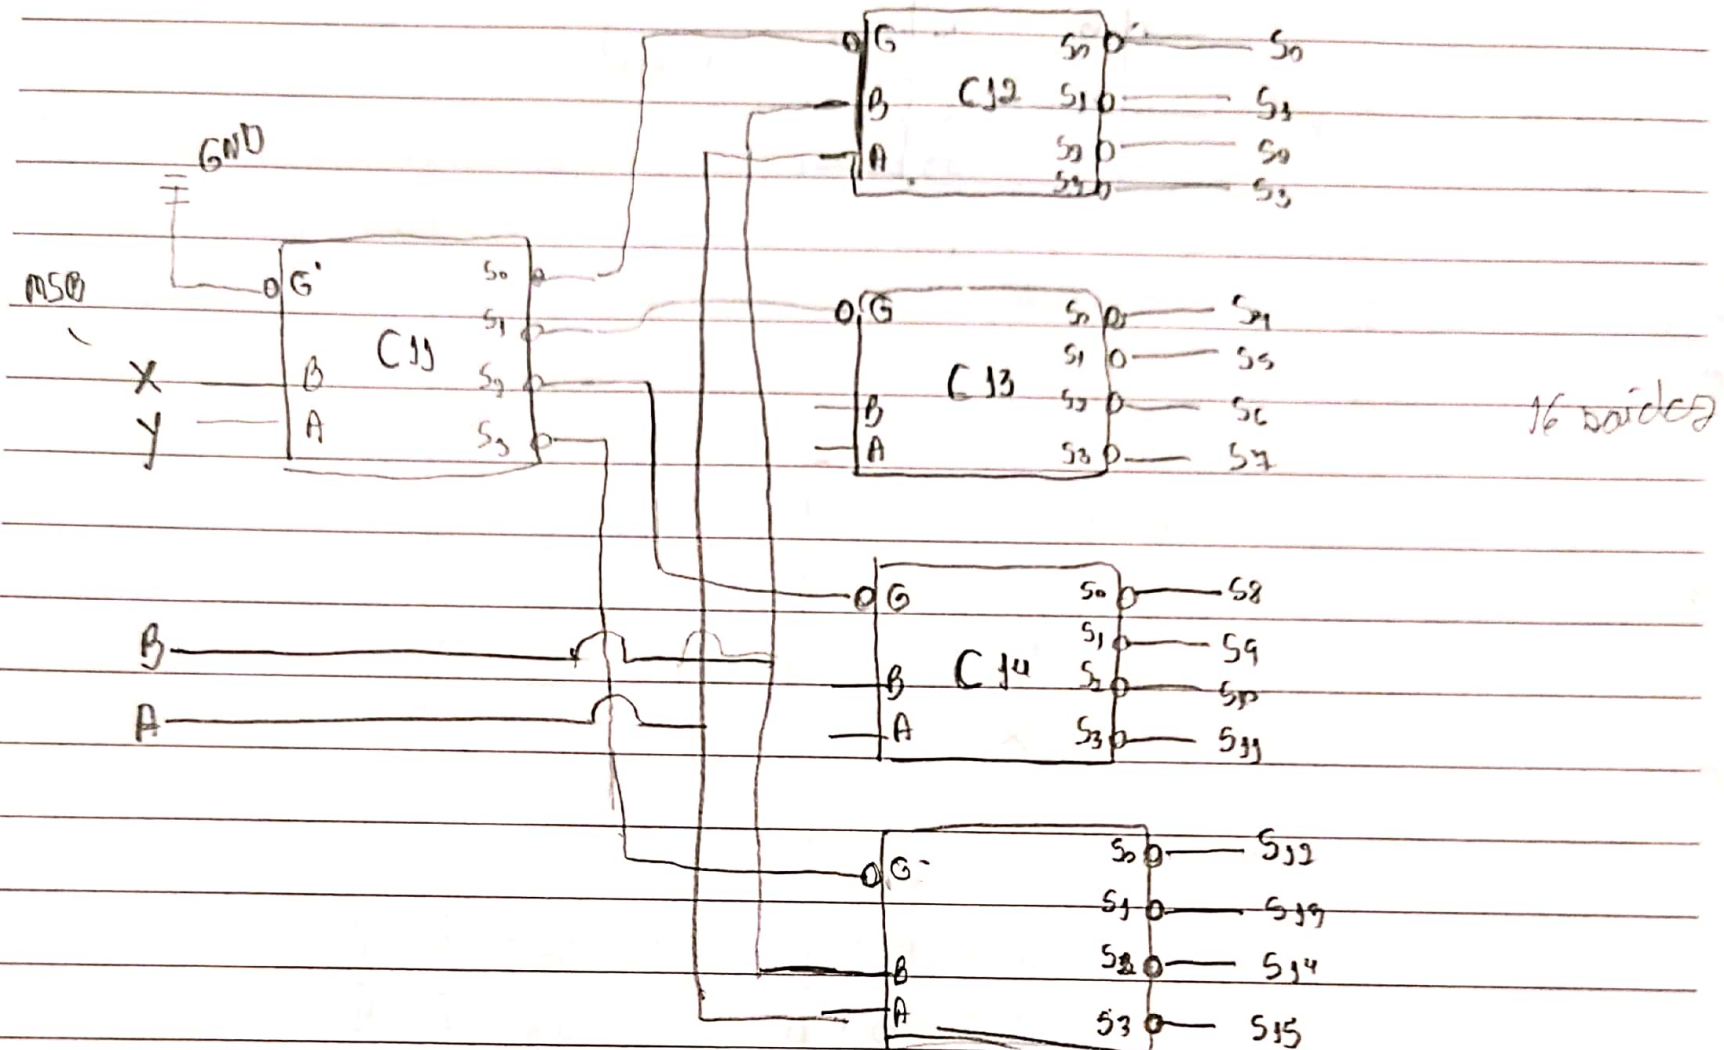 GND
MSB
X
Y
G
B
A
CI1
S0
S1
S2
S3
B
A
G
B
A
CI2
S0
S1
S2
S3
S0
S1
S2
S3
G
B
A
CI3
S0
S1
S2
S3
S4
S5
S6
S7
G
B
A
CI4
S0
S1
S2
S3
S8
S9
S10
S11
G
B
A
S0
S1
S2
S3
S12
S13
S14
S15
16 saídas